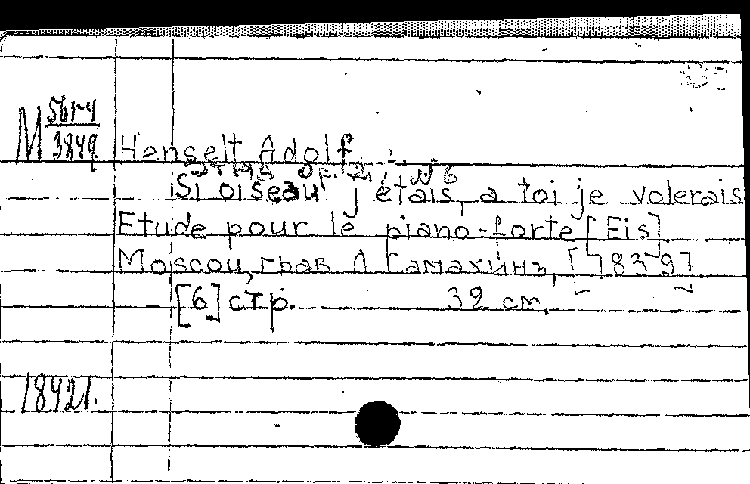 M 56г4
3849
Henselt Adolf.
Etude Op. 2, №6
Si oiseau j'étais, a toi je volerais
Etude pour le piano-forte [Fis]
Moscou, грав Л Гамахинъ, [1837-9]
[6] стр. 32 cm.
18421.